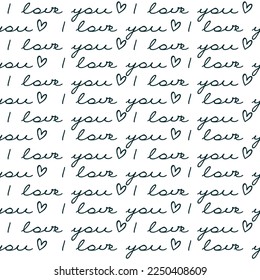 I love you♡ I love you♡
you♡ I love you♡ I love
I love you♡ I love you♡
you♡ I love you♡ I love
I love you♡ I love you♡
you♡ I love you♡ I love
I love you♡ I love you♡
you♡ I love you♡ I love
I love you♡ I love you♡
you♡ I love you♡ I love
I love you♡ I love you♡
you♡ I love you♡ I love
I love you♡ I love you♡
you♡ I love you♡ I love
shutterstock.com · 2250408609